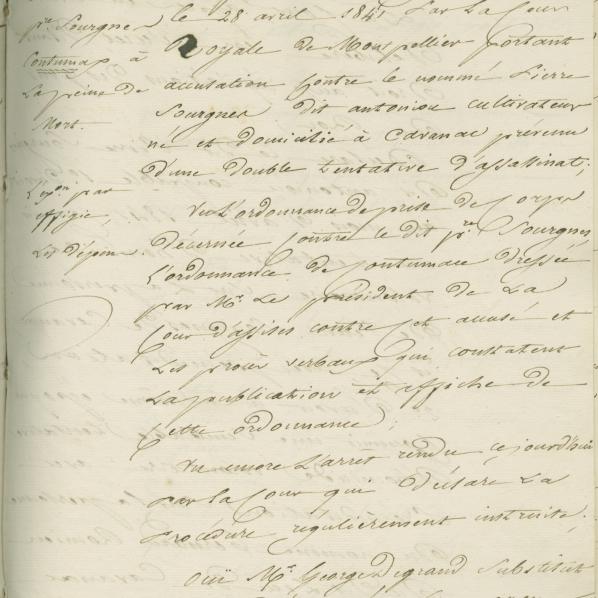 pre. Sourgnes
Contumax à
La peine de
Mort.
L'exon. par
effigie,
Les Dépens.
le 28 avril 1841 par la Cour
Royale de Montpellier portant
accusation contre le nommé Pierre
Sourgnes dit antoniou cultivateur
né et domicilié à Cavanac prévenu
d'une double tentative d'assassinat;
Vu L'ordonnance de prise de Corps
Décernée Contre le dit pre. Sourgnes,
L'ordonnance de Contumace Dressée
par Mr. Le président de La
Cour d'assises contre Cet accusé et
Les procès verbaux qui constatent
La publication et affiche de
Cette ordonnance;
Vu encore L'arret rendu ce jourd'hui
par la Cour qui Déclare La
procédure régulièrement instruite;
Oui Mr. George Degrand Substitut